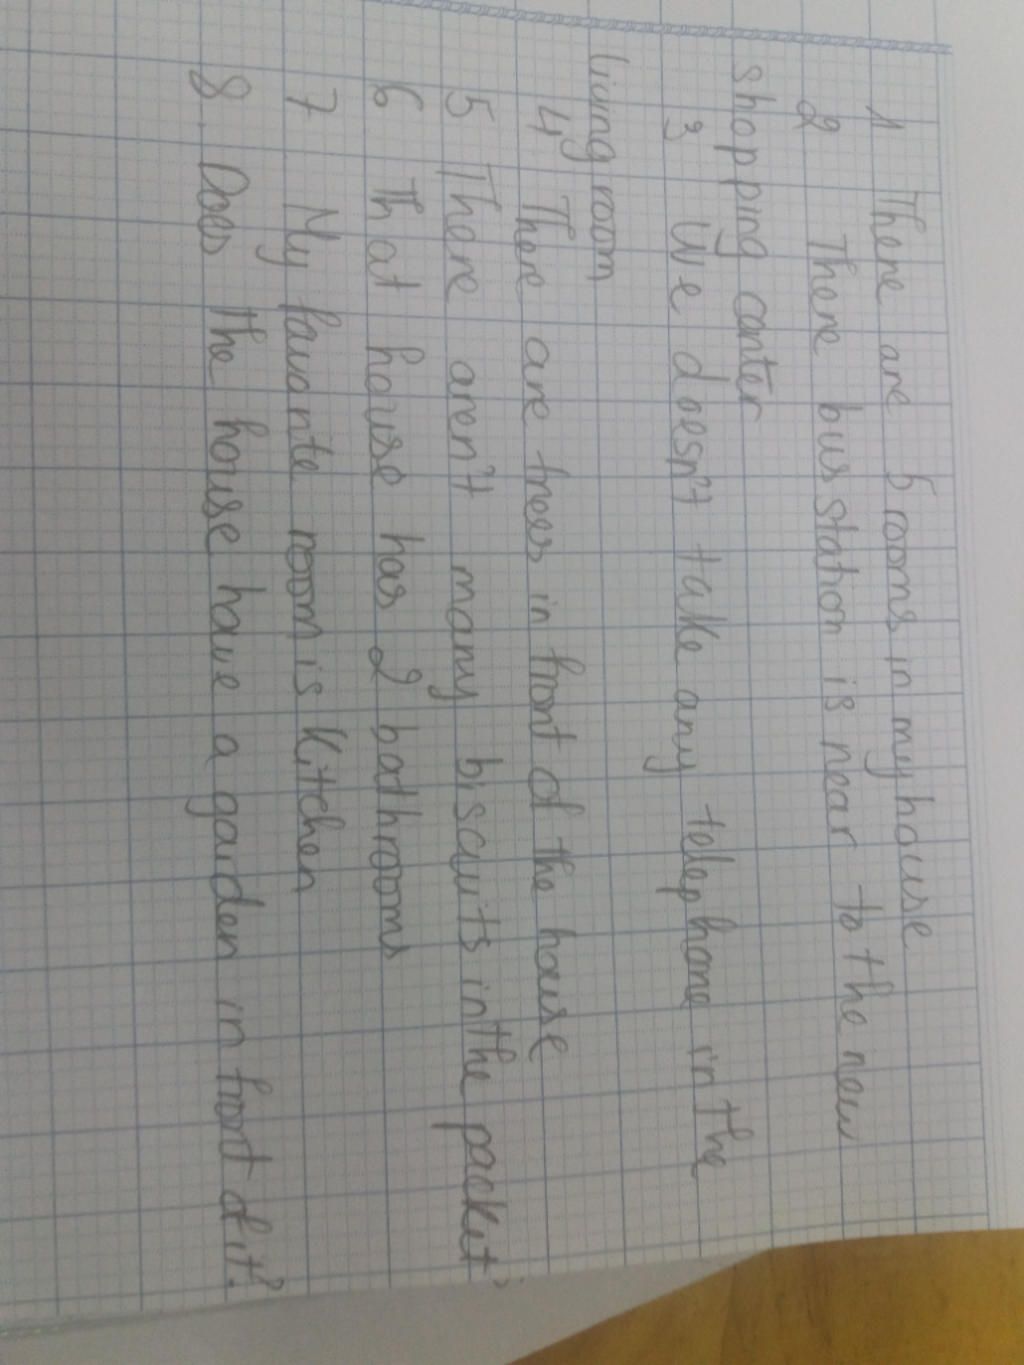 1 There are 5 rooms in my house
2 There bus station is near to the new
shopping canter
3 We doesn't take any telephone in the
living room
4 There are trees in front of the house
5 There aren't many biscuits in the packet
6 That house has 2 bathrooms
7 My favorite room is Kitchen
8. Does the house have a garden in front of it?